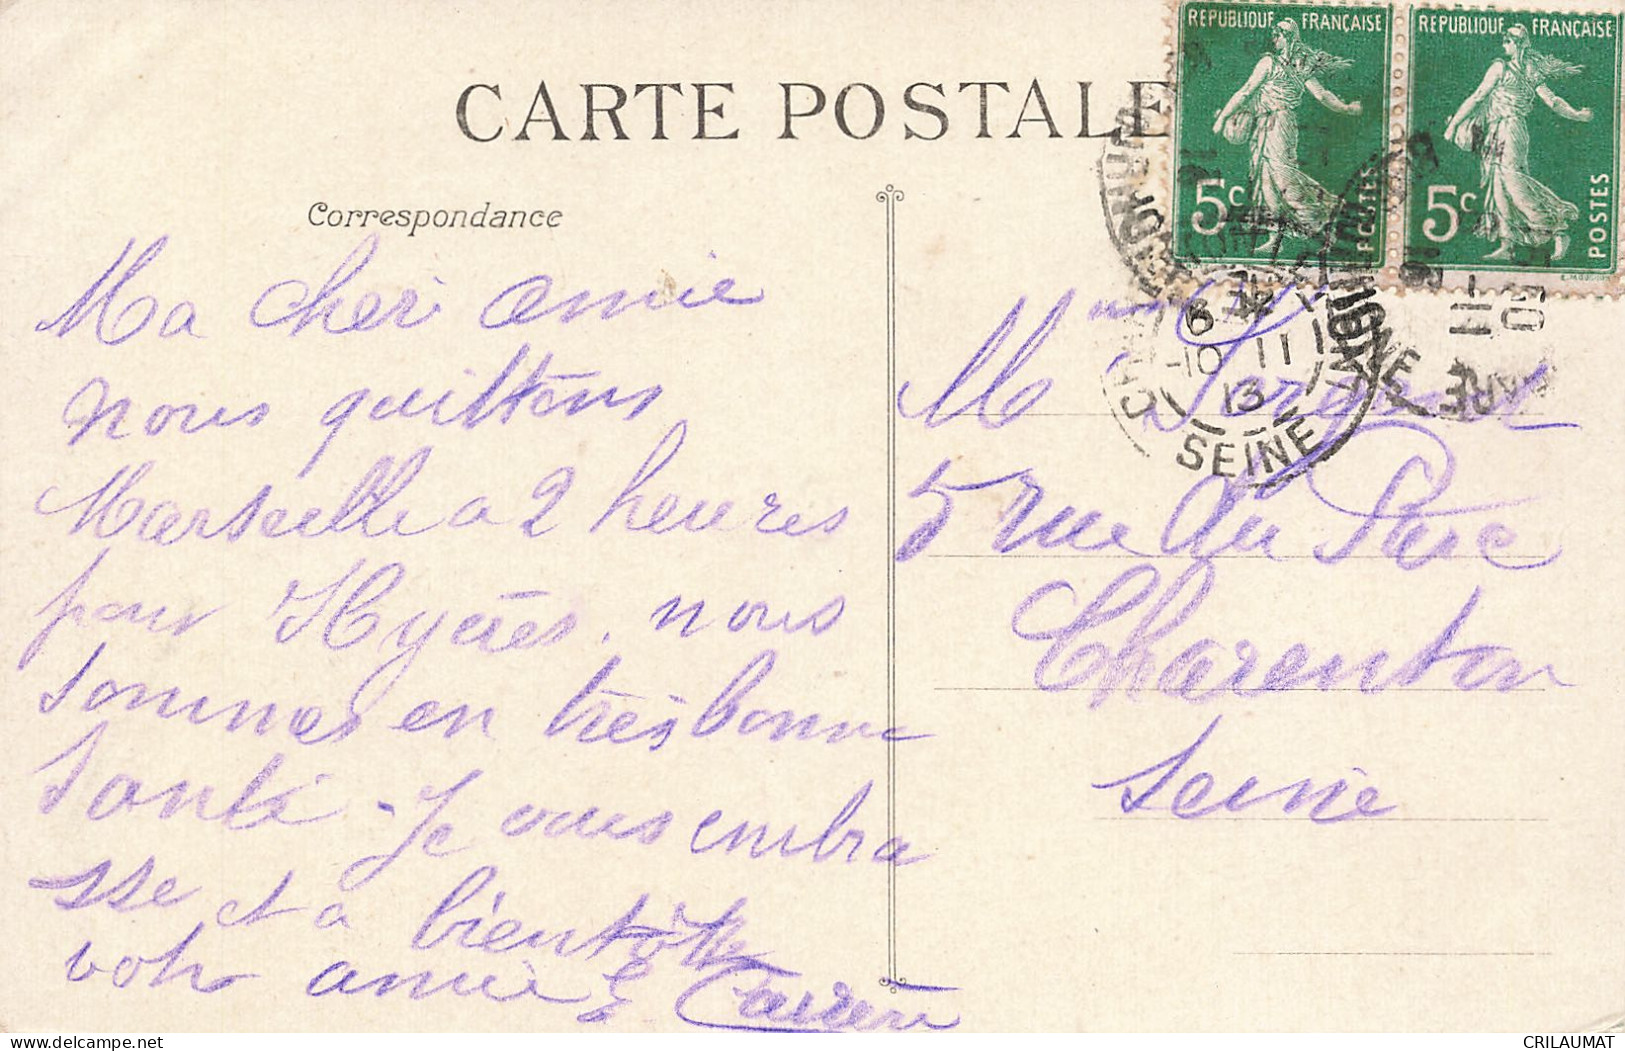 CARTE POSTALE
RÉPUBLIQUE FRANÇAISE
5c POSTES
RÉPUBLIQUE FRANÇAISE
5c POSTES
Correspondance
Ma cheri amie
nous quittons
Marseille a 2 heures
pour Hyères. nous
sommes en très bonne
santé - Je vous embra
sse et a bientôt
votre amie
Mme Sergent
5 rue du Parc
Charenton
Seine
6
-10 11
13
SEINE
delcampe.net
CRILAUMAT